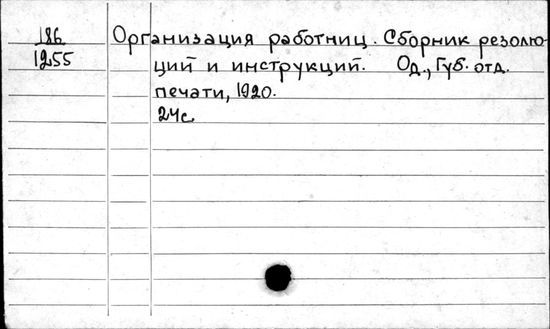 186
1255
Организация работниц. Сборник резолю-
ций и инструкций. Од., Губ. отд.
печати, 1920.
24с.